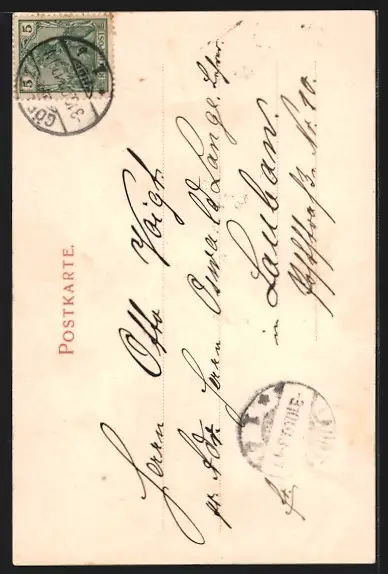 POSTKARTE.
Herrn Otto Voigt.
pr. Adr. Herrn Oswald Lange. Lehrer.
in Lauban.
Nr. 10.
fr.
5 5
GÖR